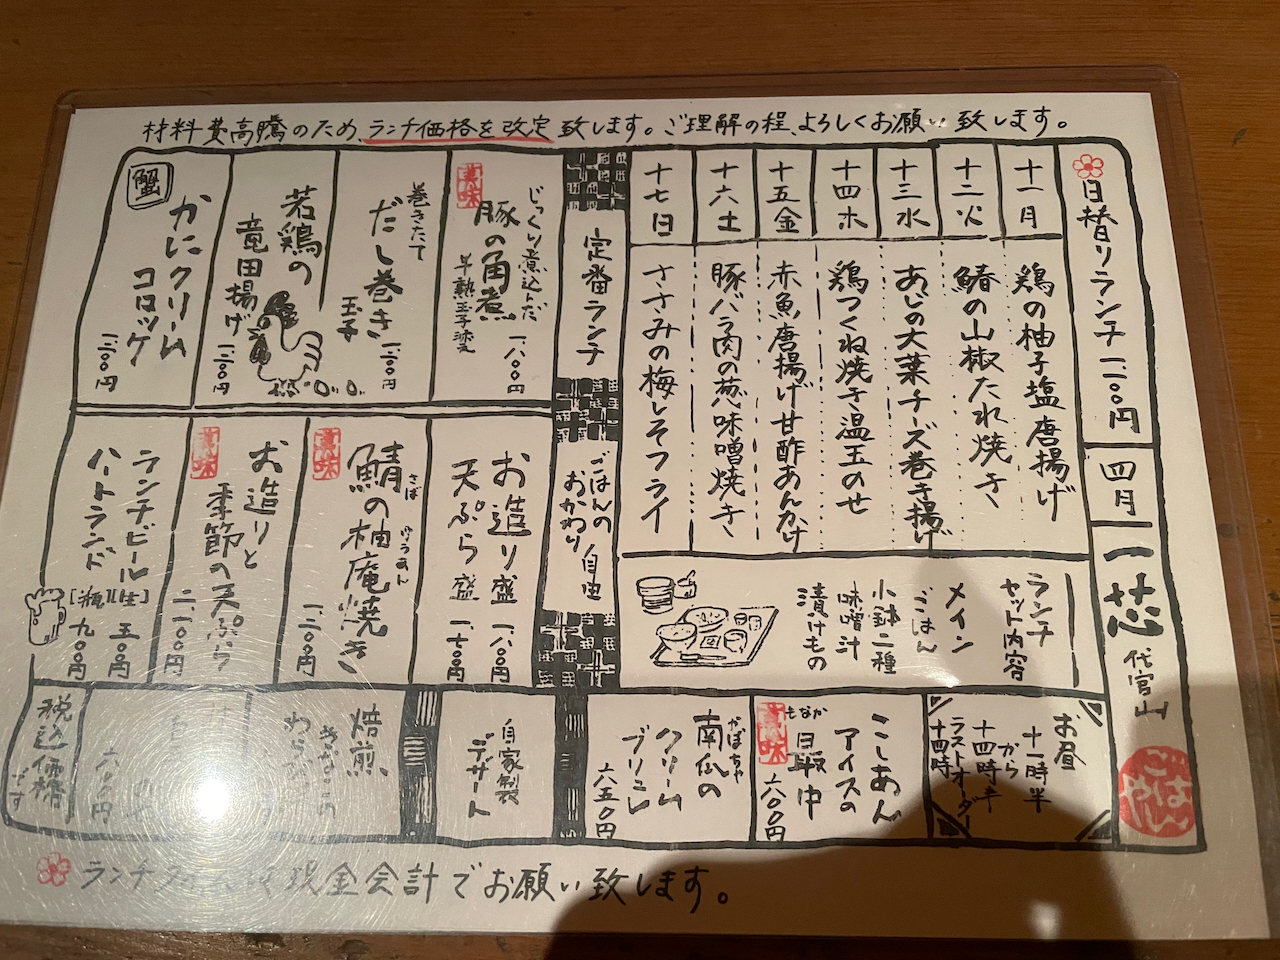 材料費高騰のため、ランチ価格を改定致します。ご理解の程、よろしくお願い致します。
日替りランチ 一、一〇〇円
四月
一芯
代官山
ごはんや
十一月
鶏の柚子塩唐揚げ
十二火
鰆の山椒たれ焼き
十三水
あじの大葉チーズ巻き揚げ
十四木
鶏つくね焼き温玉のせ
十五金
赤魚唐揚げ甘酢あんかけ
十六土
豚バラ肉の葱味噌焼き
十七日
ささみの梅しそフライ
ランチ
セット内容
メイン
ごはん
小鉢二種
味噌汁
漬けもの
お昼
十一時半
から
十四時半
ラストオーダー
十四時
定番ランチ
ごはんの
おかわり
自由
薫味
じっくり煮込んだ
豚の角煮
半熟玉子添え
一、一八〇円
巻きたて
だし巻き
玉子
一、三〇〇円
若鶏の
竜田揚げ
一、三〇〇円
蟹
かにクリーム
コロッケ
一、三〇〇円
お造り盛 一、八〇〇円
天ぷら盛 一、七〇〇円
さば
ゆうあん
鯖の柚庵焼き
一、三〇〇円
お造りと
季節の天ぷら
二、二〇〇円
ランチビール[生] 五〇〇円
ハートランド[瓶] 九〇〇円
こしあん
アイスの
もなか
最中
六〇〇円
かぼちゃ
南瓜の
クリーム
ブリュレ
六五〇円
自家製
デザート
焙煎
きなこの
わらび
六〇〇円
税込価格
です
ランチ
現金会計でお願い致します。